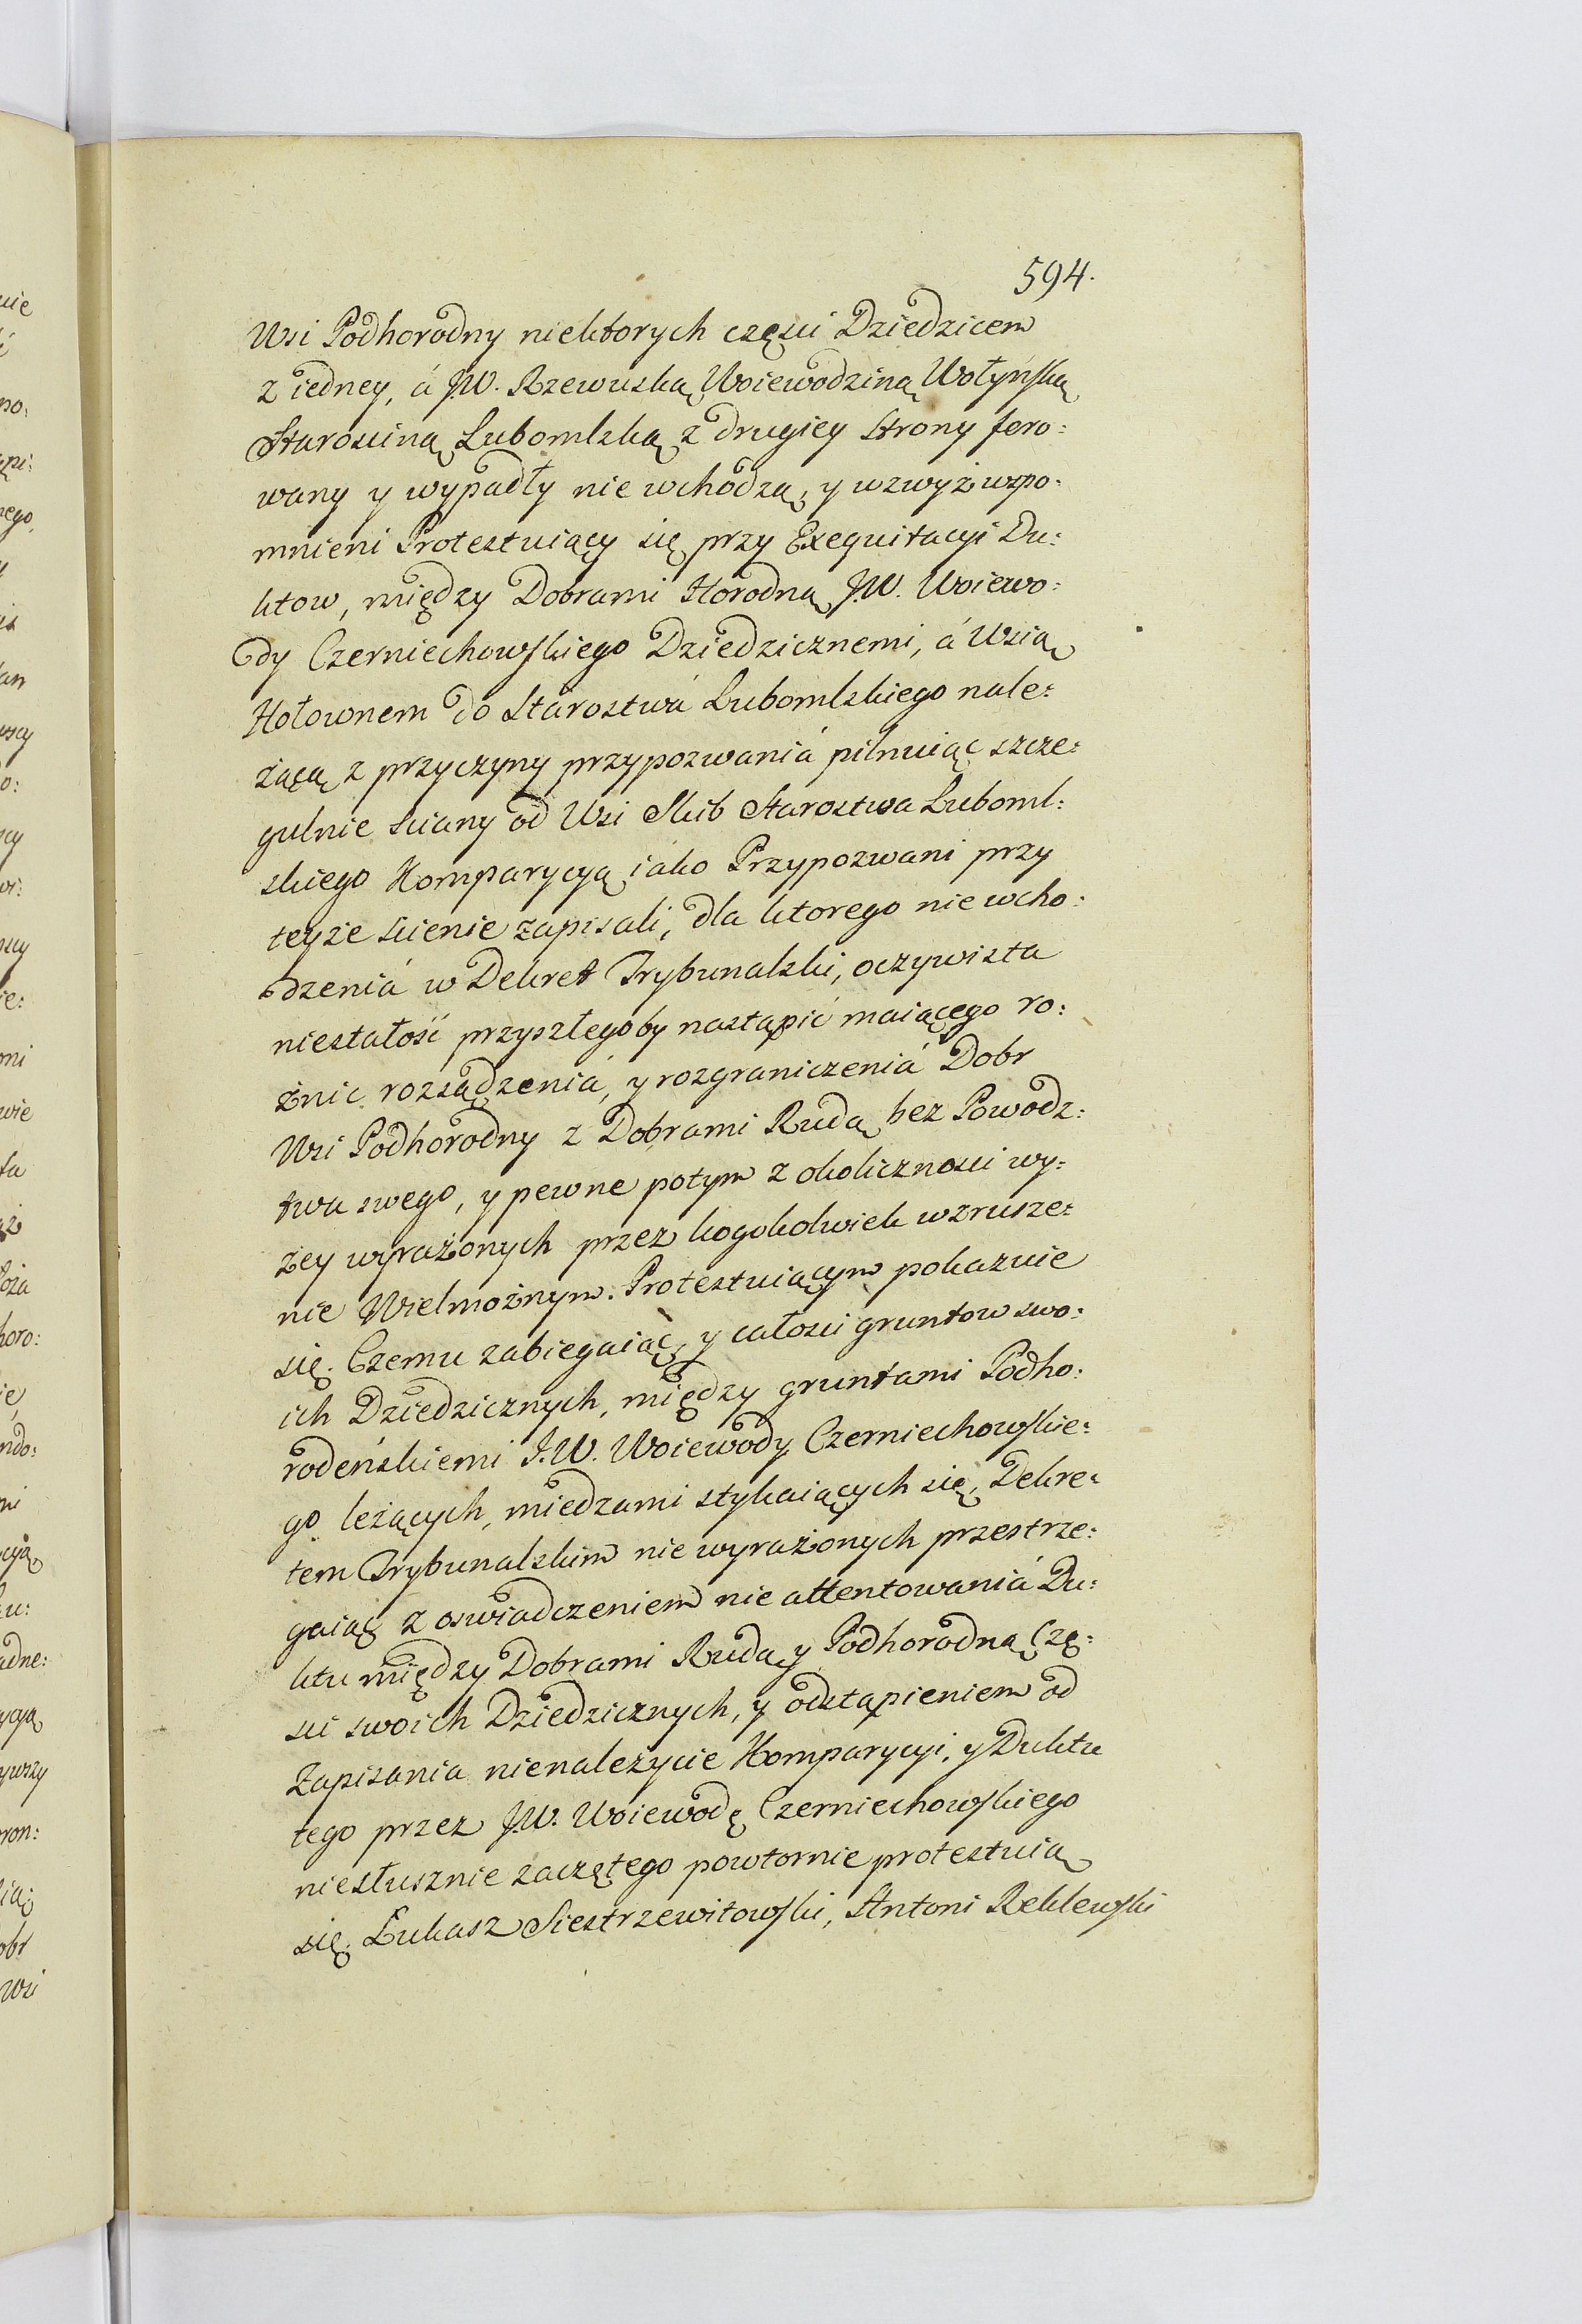 594.
Wsi Podhorodny niektorych częsci Dziedzicem
z iedney, á J.W. Rzewuską Woiewodziną Wołyńską
Starosciną Lubomlską z drugiey strony fero:
wany y wypadły nie wchodzą, y wzwyż wzpo:
mnieni Protestuiący się przy Exequitacyi Du:
ktow, między Dobrami Horodną J.W. Woiewo:
dy Czerniechowskiego Dziedzicznemi, á Wsią
Hołownem do Starostwá Lubomlskiego nale:
żącą z przyczyny przypozwaniá pilnuiąc szcze:
gulnie sciany od Wsi Słub Starostwa Luboml:
skiego Komparycyą iako Przypozwani przy
teyże scienie zapisali, dla ktorego nie wcho:
dzeniá w Dekret Trybunalski, oczywista
niestałość przyszłego by nastąpić maiącego ro:
żnic rozsądzeniá, y rozgraniczeniá Dobr
Wsi Podhorodny z Dobrami Rudą bez Powodz:
twa swego, y pewne potym z okolicznosci wy:
żey wyrażonych przez kogokolwiek wzrusze:
nie Wielmożnym Protestuiącym pokazuie
się. Czemu zabiegaiąc, y całosci gruntow swo:
ich Dziedzicznych, między gruntami Podho:
rodeńskiemi J.W. Woiewody Czerniechowskie:
go leżących, miedzami stykaiących się, Dekre:
tem Trybunalskim nie wyrażonych przestrze:
gaiąc z oswiadczeniem nie attentowaniá Du:
ktu między Dobrami Rudą y Podhorodną Czę:
sci swoich Dziedzicznych, y odstąpieniem od
Zapisania nienależycie Komparycyi, y Duktu
tego przez J.W. Woiewodę Czerniechowskiego
niesłusznie zaczętego powtornie protestuią
się. Łukasz Siestrzewitowski, Antoni Reklewski